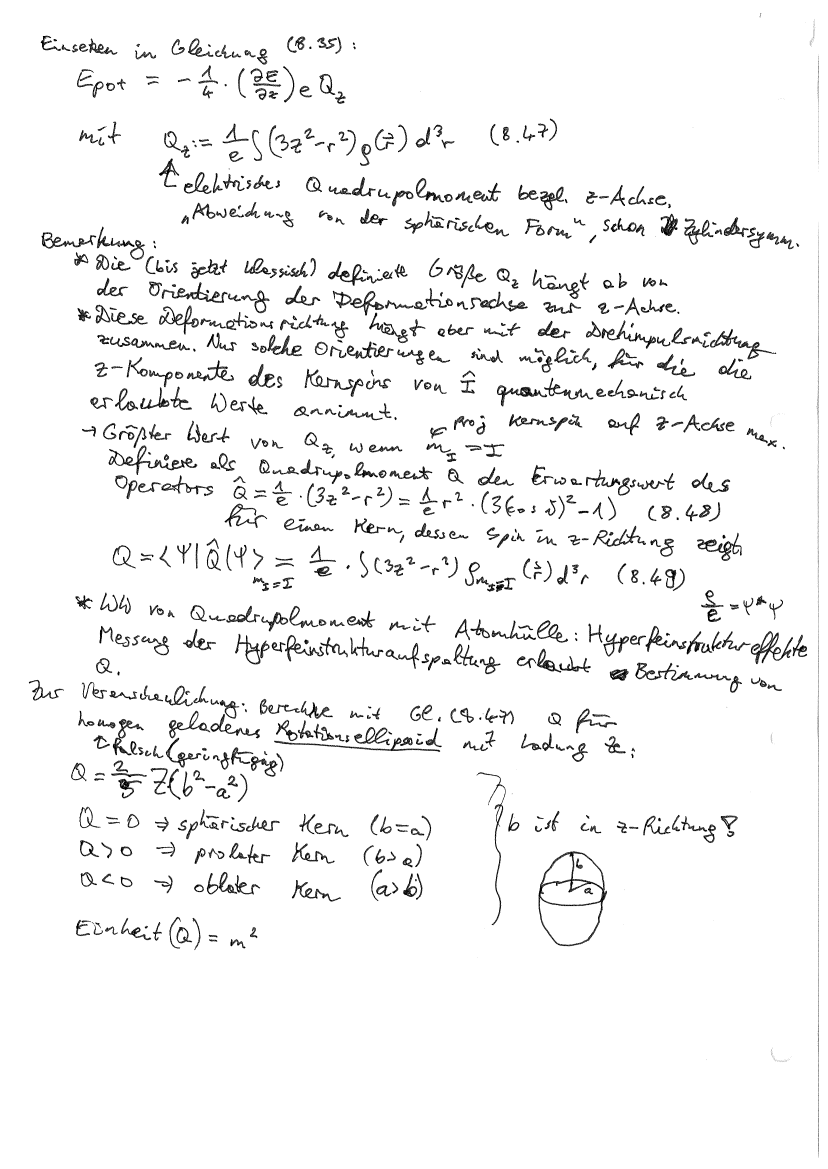 Einsetzen in Gleichung (8.35):
E_pot = - 1/4 · (∂E/∂z) e Q_z
mit Q_z := 1/e ∫ (3z² - r²) ρ(r⃗) d³r (8.47)
↑ elektrisches Quadrupolmoment bezgl. z-Achse.
„Abweichung von der sphärischen Form", schon Zylindersymm.
Bemerkung:
* Die (bis jetzt klassisch) definierte Größe Q_z hängt ab von
der Orientierung der Deformationsachse zur z-Achse.
* Diese Deformationsrichtung hängt aber mit der Drehimpulsrichtung
zusammen. Nur solche Orientierungen sind möglich, für die die
z-Komponente des Kernspins von Î quantenmechanisch
erlaubte Werte annimmt.
proj Kernspin auf z-Achse max.
→ Größter Wert von Q_z, wenn m_I = I
Definiere als Quadrupolmoment Q den Erwartungswert des
Operators Q̂ = 1/e · (3z² - r²) = 1/e r² · (3(cos ϑ)² - 1) (8.48)
für einen Kern, dessen Spin in z-Richtung zeigt
Q = <Ψ|Q̂|Ψ>_{m_I=I} = 1/e · ∫ (3z² - r²) ρ_{m_I=I} (r⃗) d³r (8.49)
ρ/e = Ψ*Ψ
* WW von Quadrupolmoment mit Atomhülle: Hyperfeinstruktureffekte
Messung der Hyperfeinstrukturaufspaltung erlaubt Bestimmung von
Q.
Zur Veranschaulichung: Berechne mit Gl. (8.47) Q für
homogen geladenes Rotationsellipsoid mit Ladung Ze:
↑ falsch (geringfügig)
Q = 2/5 Z(b² - a²)
Q = 0 ⇒ sphärischer Kern (b=a)
b ist in z-Richtung!
Q > 0 ⇒ prolater Kern (b>a)
Q < 0 ⇒ oblater Kern (a>b)
b
a
Einheit (Q) = m²